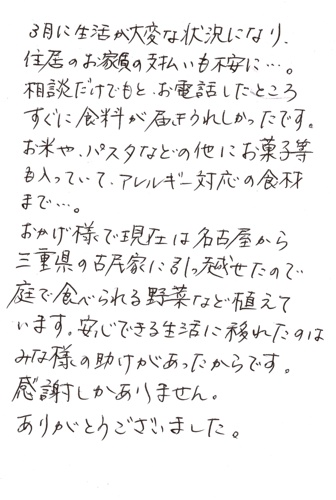 3月に生活が大変な状況になり、
住居のお家賃の支払いも不安に…。
相談だけでもと、お電話したところ
すぐに食料が届きうれしかったです。
お米や、パスタなどの他にお菓子等
も入っていて、アレルギー対応の食材
まで…。
おかげ様で現在は名古屋から
三重県の古民家に引っ越せたので
庭で食べられる野菜など植えて
います。安心できる生活に移れたのは
みな様の助けがあったからです。
感謝しかありません。
ありがとうございました。